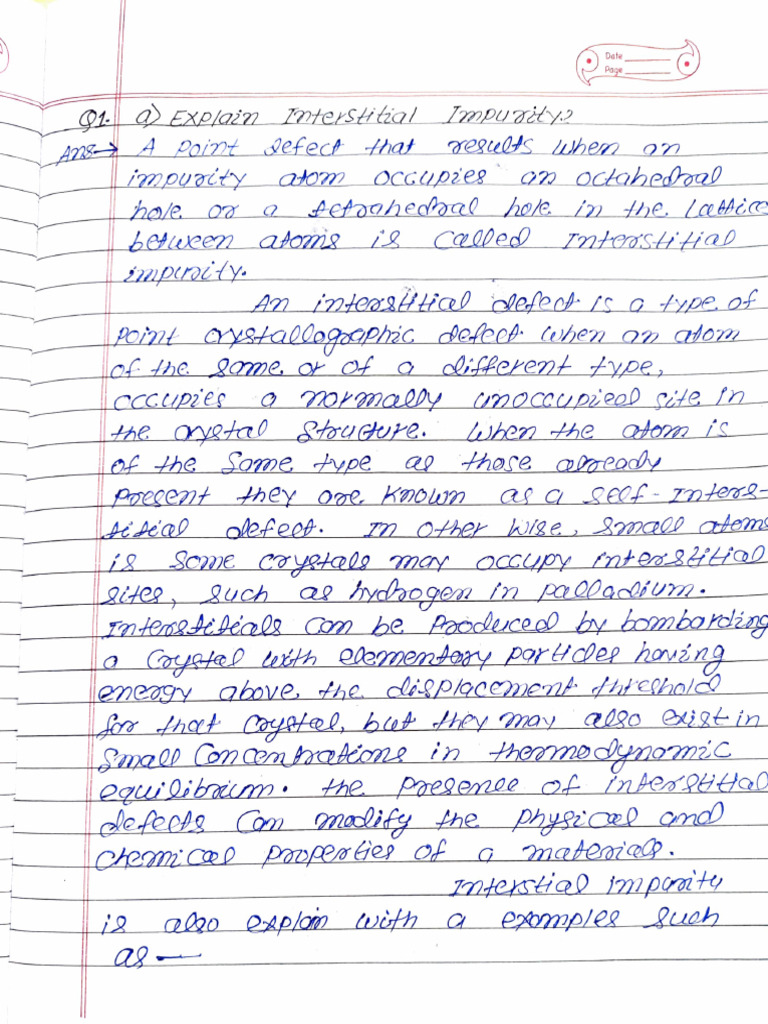 Date
Page
Q1. a) Explain Interstitial Impurity?
Ans→ A point defect that results when an
impurity atom occupies an octahedral
hole or a tetrahedral hole in the lattice
between atoms is called Interstitial
impurity.
An interstitial defect is a type of
point crystallographic defect when an atom
of the same or of a different type,
occupies a normally unoccupied site in
the crystal structure. When the atom is
of the same type as those already
present they are known as a self-inters-
titial defect. In other wise, small atoms
is some crystals may occupy interstitial
sites, such as hydrogen in palladium.
Interstitials can be produced by bombarding
a crystal with elementary particles having
energy above the displacement threshold
for that crystal, but they may also exist in
small concentrations in thermodynamic
equilibrium. the presence of interstitial
defects can modify the physical and
chemical properties of a materials.
Interstial impurity
is also explain with a examples such
as —